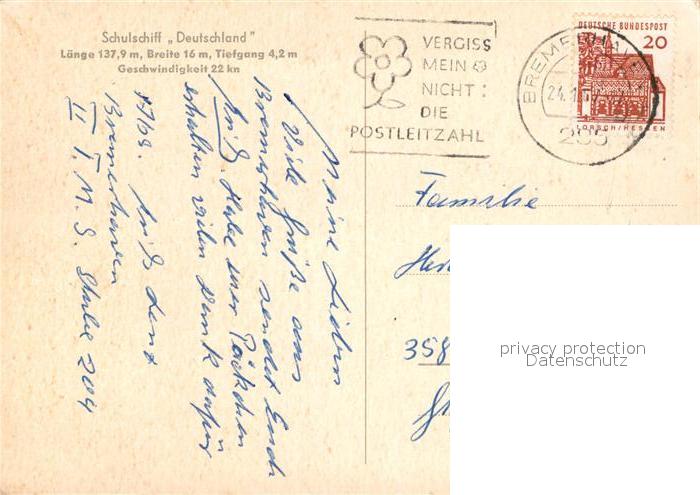 Schulschiff „Deutschland"
Länge 137,9 m, Breite 16 m, Tiefgang 4,2 m
Geschwindigkeit 22 kn
VERGISS
MEIN
NICHT:
DIE
POSTLEITZAHL
BREMERHAV
24.1
285
DEUTSCHE BUNDESPOST
20
LORSCH/HESSEN
Meine Lieben
Viele Grüße aus
Bremerhaven sendet Euch
Habe euer Päckchen
erhalten vielen Dank dafür
Bremerhaven
II T.M.S. Stube 204
Familie
358
privacy protection
Datenschutz